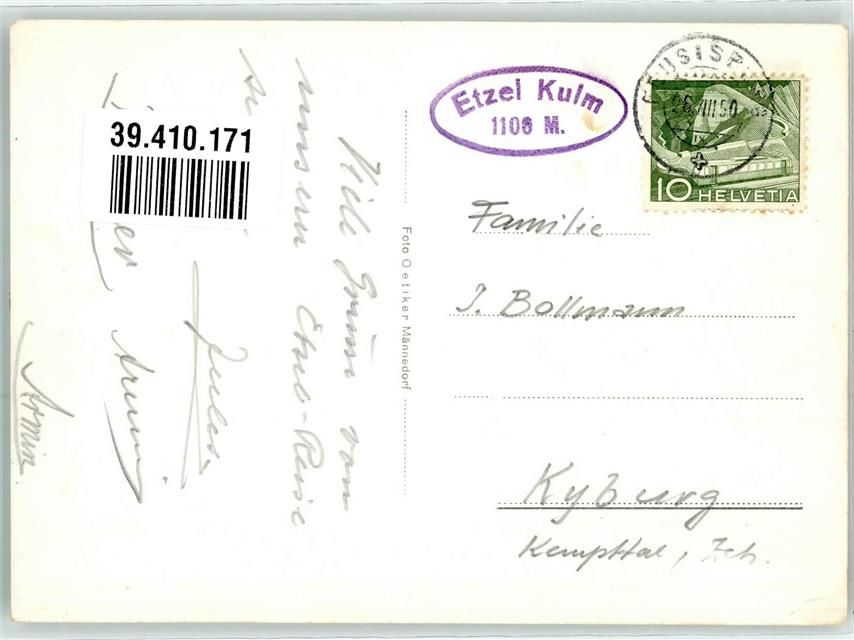 39.410.171
Viele Grüsse von
unserm Etzel-Reise
Jules
Armin
Foto Oetiker Männedorf
Etzel Kulm
1106 M.
10 HELVETIA
Familie
J. Bollmann
Kyburg
Kempttal, Zch.